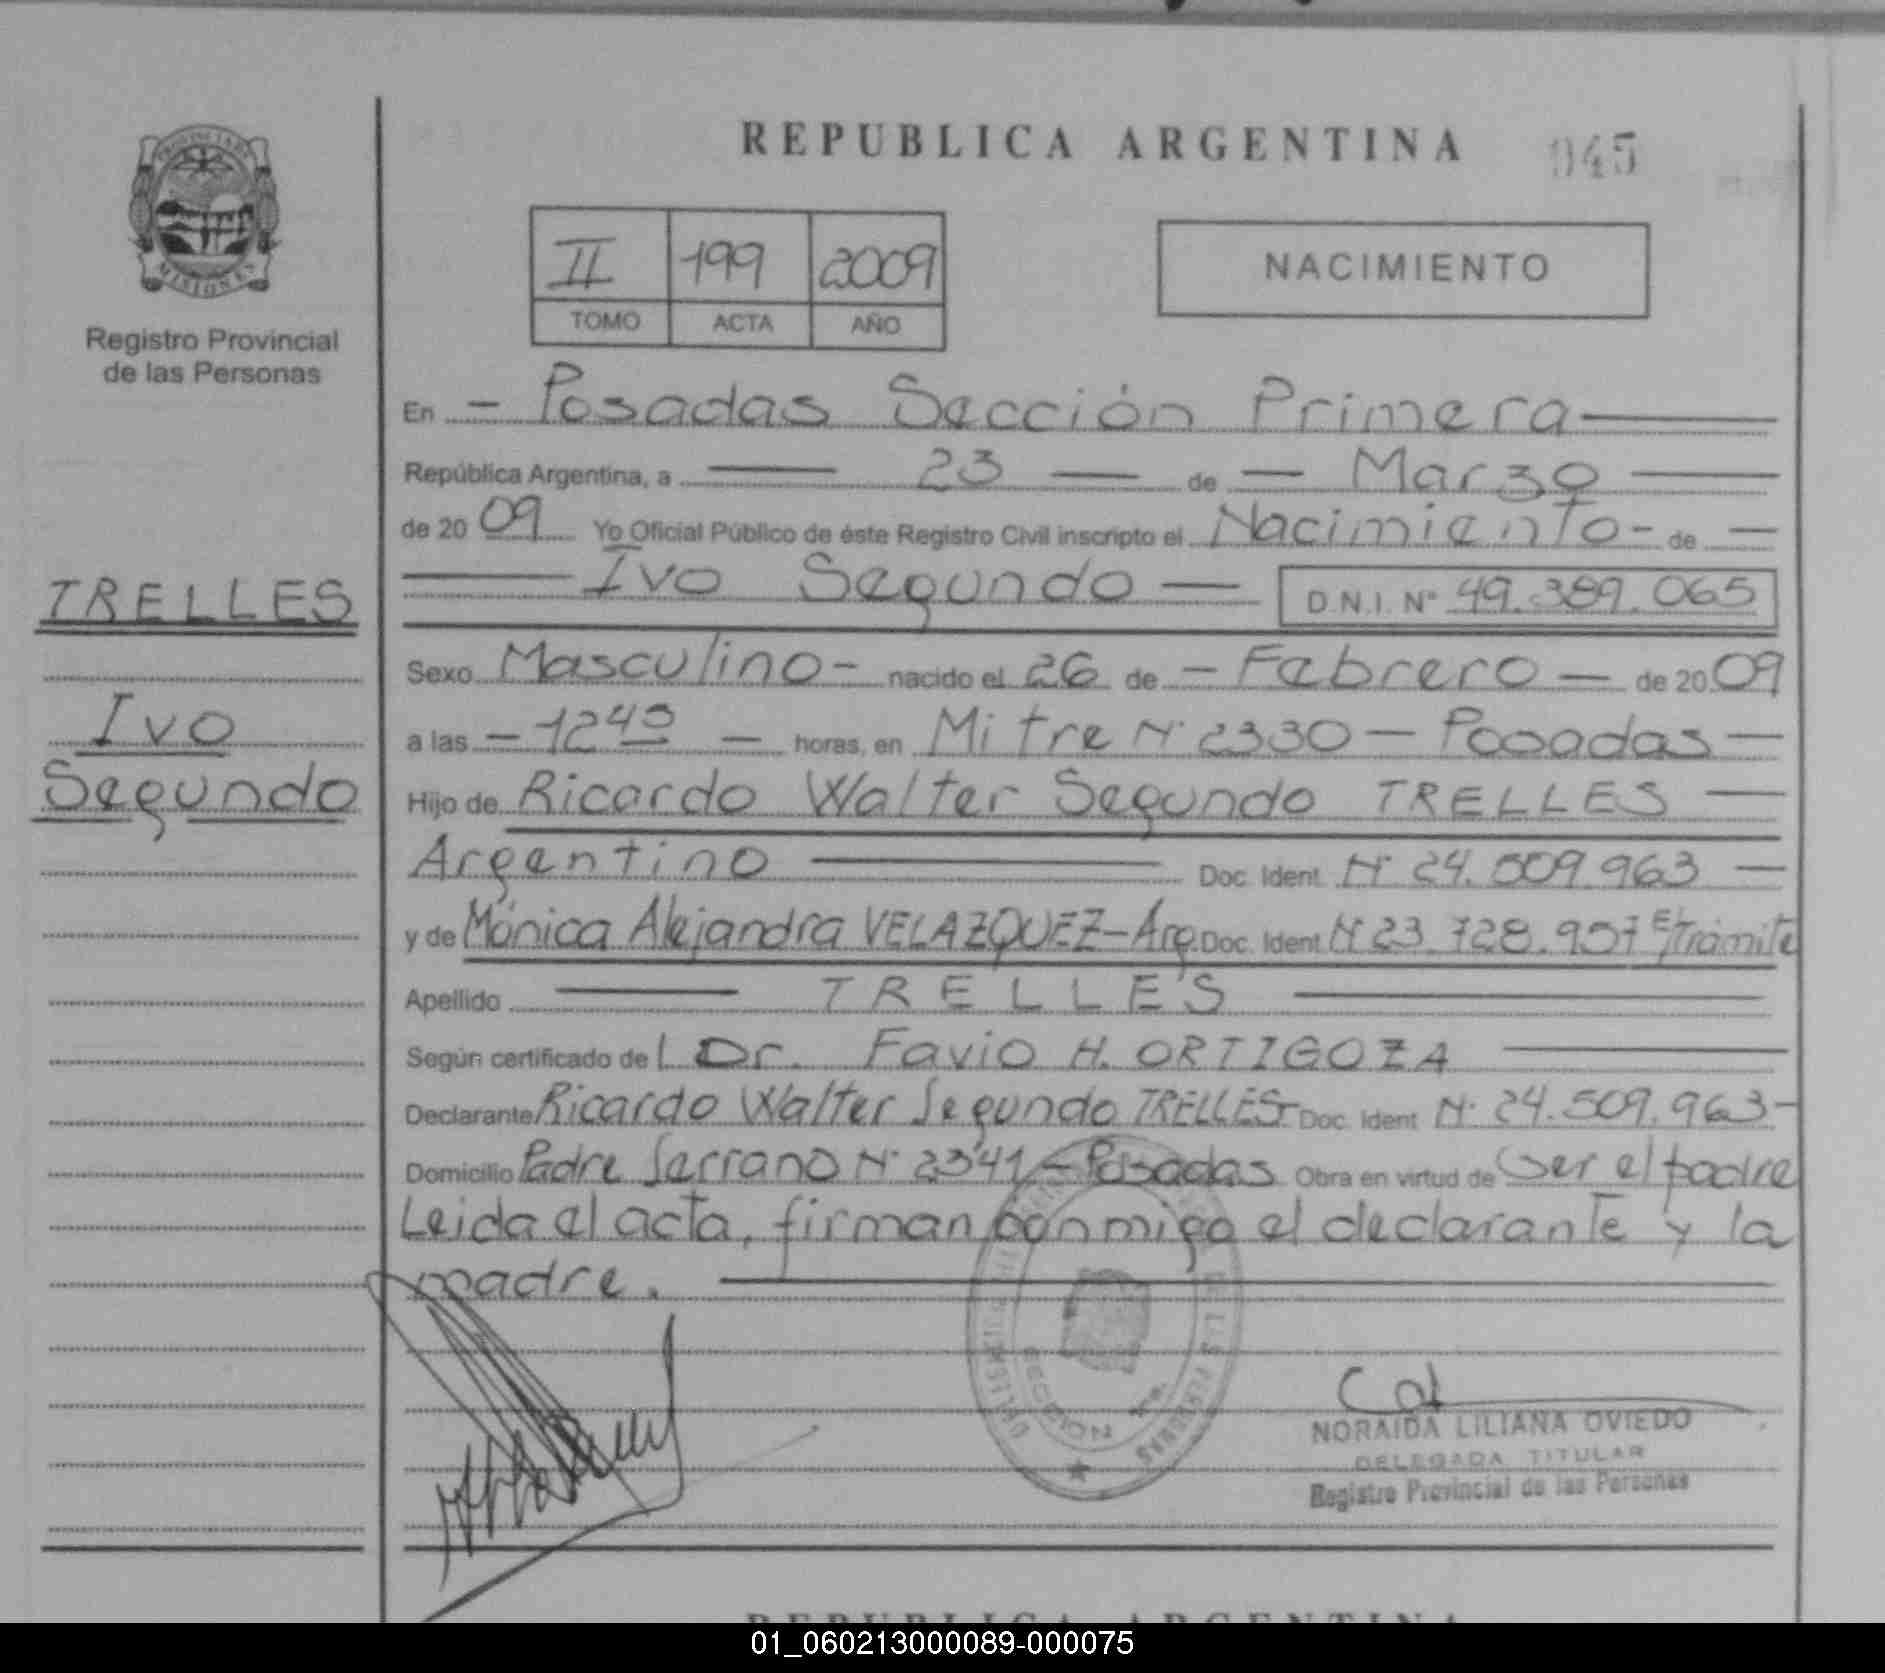 REPUBLICA ARGENTINA
045
PROVINCIA DE
MISIONES
Registro Provincial
de las Personas
II 199 2009
TOMO ACTA AÑO
NACIMIENTO
En - Posadas Sección Primera
República Argentina, a 23 de - Marzo
de 2009 Yo Oficial Público de éste Registro Civil inscripto el Nacimiento - de -
Ivo Segundo - D.N.I. Nº 49.389.065
TRELLES
Ivo
Segundo
Sexo Masculino - nacido el 26 de - Febrero - de 2009
a las - 1245 - horas, en Mitre Nº 2330 - Posadas -
Hijo de Ricardo Walter Segundo TRELLES -
Argentino Doc. Ident. Nº 24.509.963 -
y de Mónica Alejandra VELAZQUEZ - Arg. Doc. Ident. Nº 23.728.957 E/trámite
Apellido TRELLES
Según certificado de l Dr. Favio H. ORTIGOZA
Declarante Ricardo Walter Segundo TRELLES - Doc. Ident. Nº 24.509.963 -
Domicilio Padre Serrano Nº 2341 - Posadas Obra en virtud de Ser el padre
Leida el acta, firman conmigo el declarante y la
madre.
DE LAS PERSONAS
SECCION 1ra.
NORAIDA LILIANA OVIEDO
DELEGADA TITULAR
Registro Provincial de las Personas
REPUBLICA ARGENTINA
01_060213000089-000075